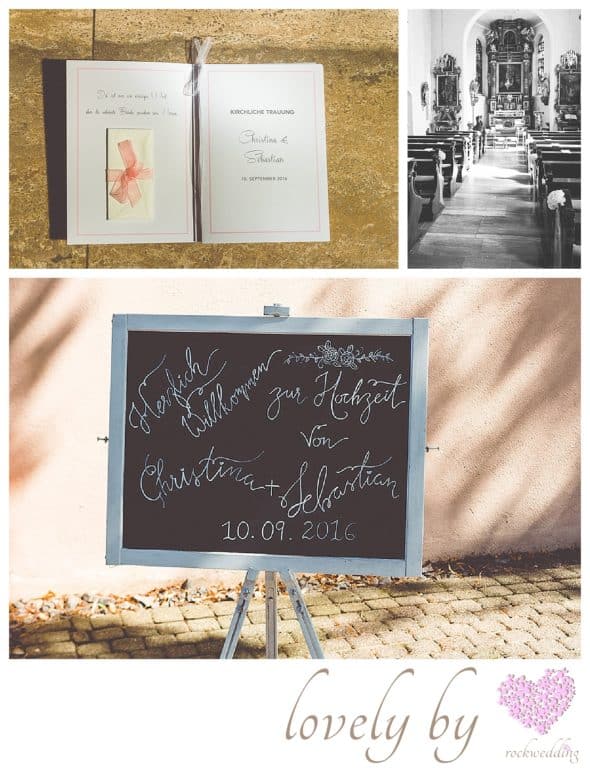 Du bist nur ein einzige Welt,
KIRCHLICHE TRAUUNG
Christina &
Sebastian
10. SEPTEMBER 2016
Herzlich
Willkommen
zur Hochzeit
von
Christina + Sebastian
10.09.2016
lovely by
rockwedding